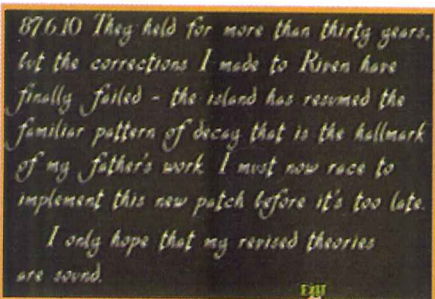 87.6.10 They held for more than thirty years,
but the corrections I made to Riven have
finally failed - the island has resumed the
familiar pattern of decay that is the hallmark
of my father's work. I must now race to
implement this new patch before it's too late.
I only hope that my revised theories
are sound.
EXIT